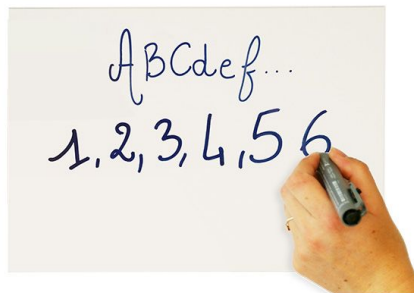 ABCdef...
1,2,3,4,5 6